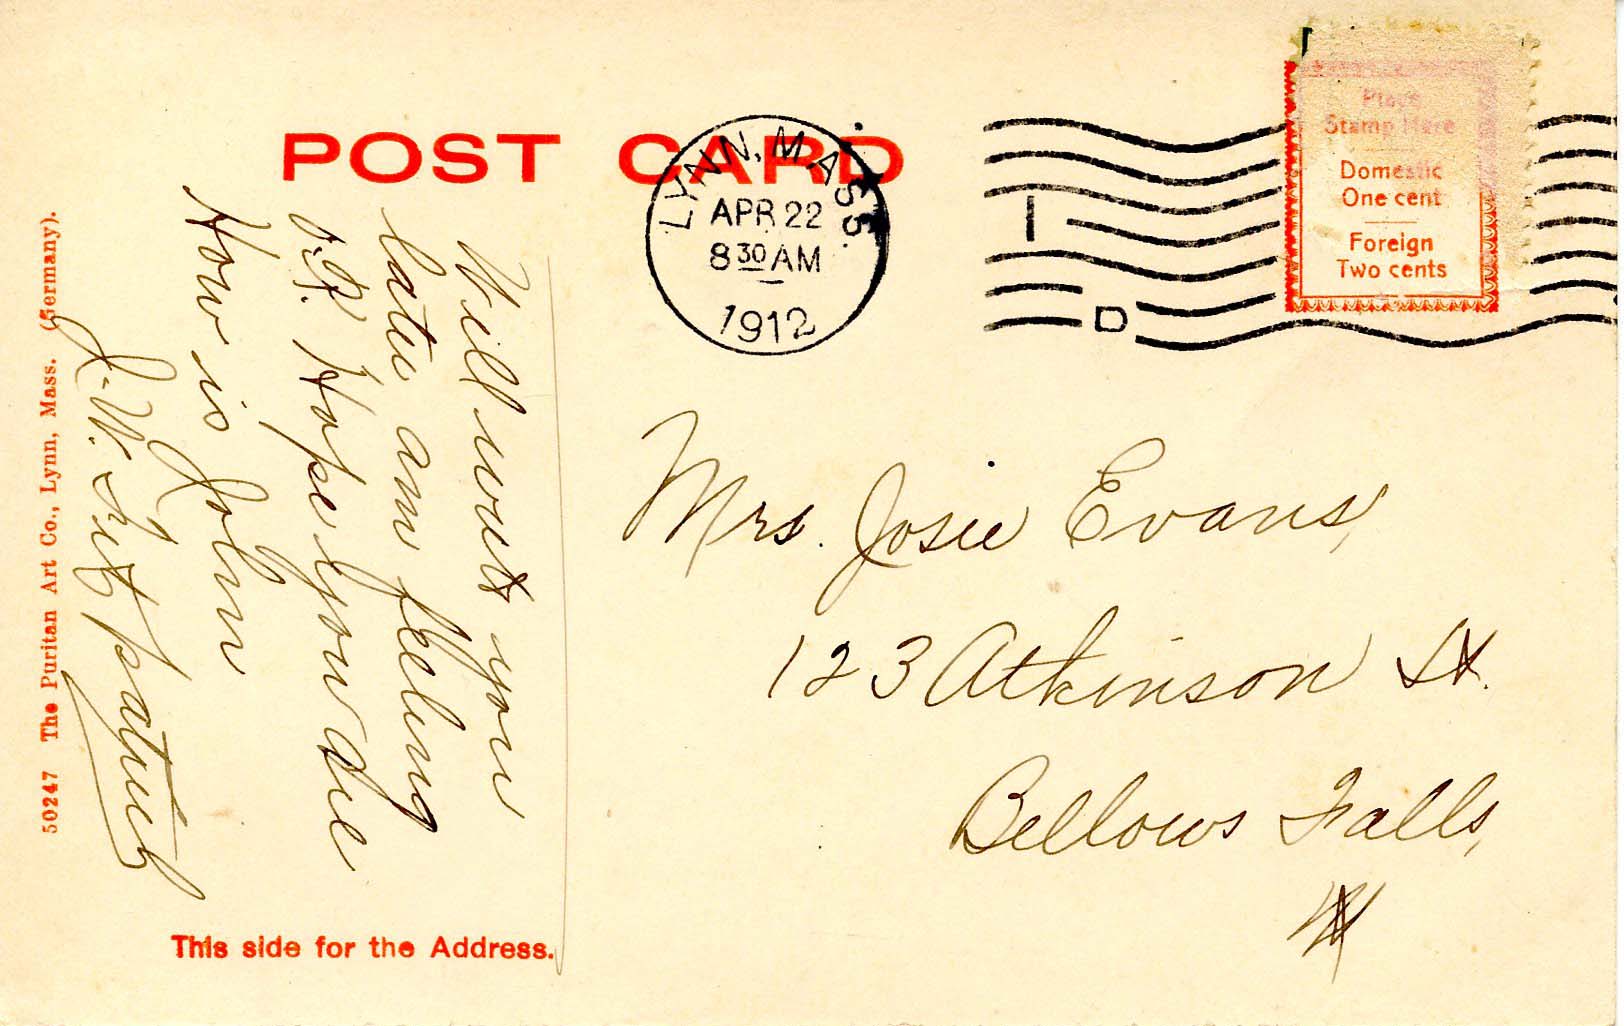 POST CARD
LYNN, MASS.
APR 22
8 30 AM
1912
I
D
Place
Stamp Here
Domestic
One cent
Foreign
Two cents
Will write you
later am feeling
O.K. Hope you are
How is John
J. W. Fitzpatrick
Mrs. Josie Evans,
123 Atkinson St.
Bellows Falls,
Vt
This side for the Address.
50247 The Puritan Art Co., Lynn, Mass. (Germany).